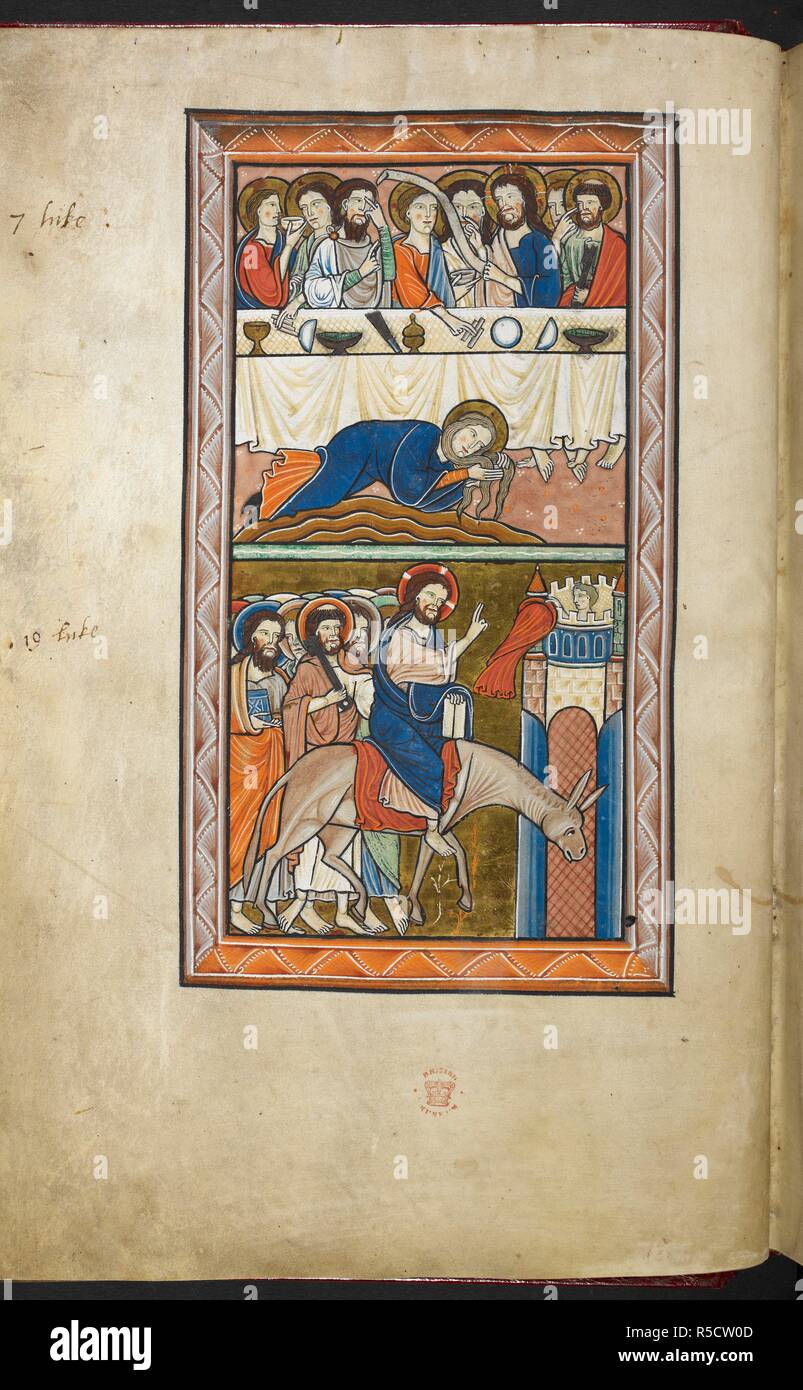 7 luke
19 luke
BRITISH
MUSEUM
alamy
Image ID: R5CW0D
www.alamy.com